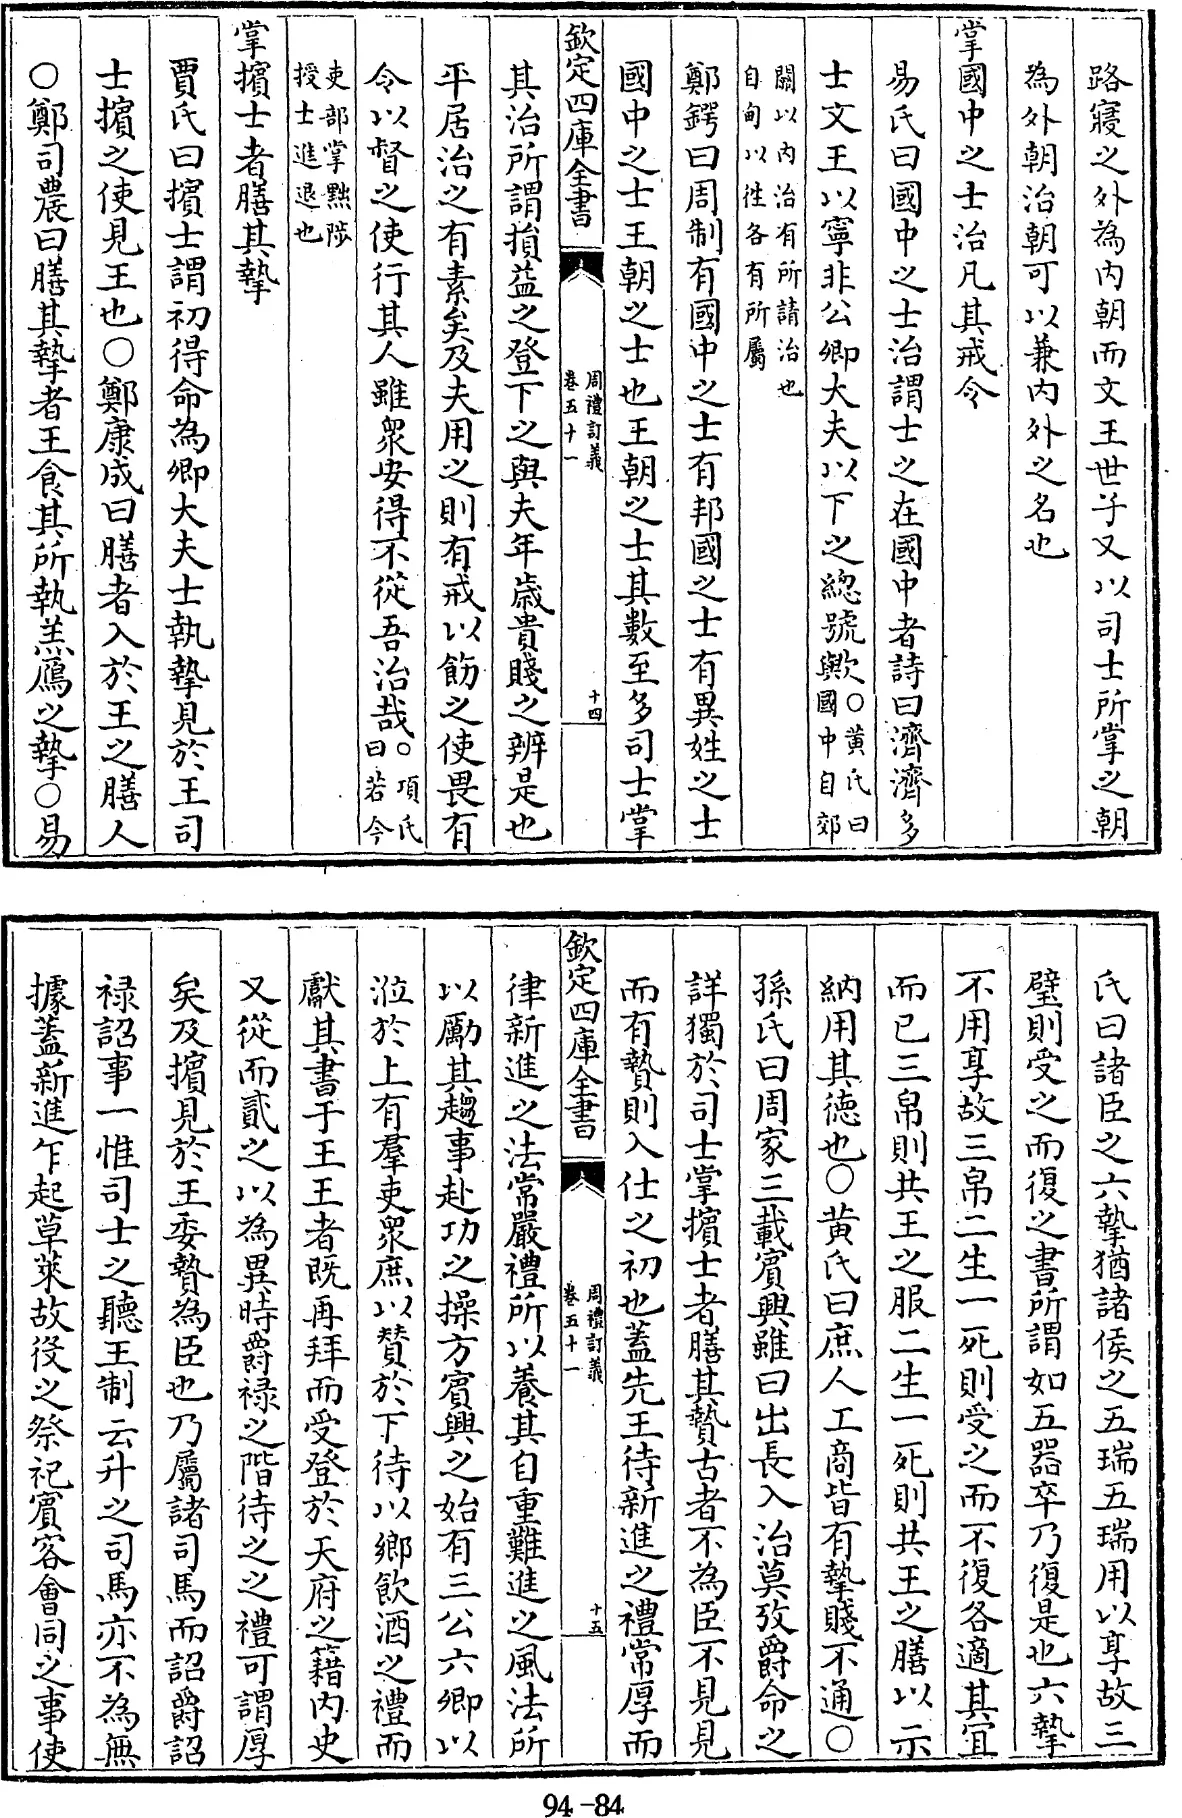 路寢之外為内朝而文王世子又以司士所掌之朝
為外朝治朝可以兼内外之名也
掌國中之士治凡其戒令
易氏曰國中之士治謂士之在國中者詩曰濟濟多
士文王以寧非公卿大夫以下之總號歟○黄氏曰國中自郊
關以内治有所請治也自甸以徃各有所屬
鄭鍔曰周制有國中之士有邦國之士有異姓之士
國中之士王朝之士也王朝之士其數至多司士掌
欽定四庫全書
周禮訂義
卷五十一
十四
其治所謂損益之登下之與夫年歲貴賤之辨是也
平居治之有素矣及夫用之則有戒以飭之使畏有
令以督之使行其人雖衆安得不從吾治哉○項氏曰若今
吏部掌黜陟授士進退也
掌擯士者膳其摯
賈氏曰擯士謂初得命為卿大夫士執摯見於王司
士擯之使見王也○鄭康成曰膳者入於王之膳人
○鄭司農曰膳其摯者王食其所執羔鴈之摯○易
氏曰諸臣之六摯猶諸侯之五瑞五瑞用以享故三
璧則受之而復之書所謂如五器卒乃復是也六摯
不用享故三帛二生一死則受之而不復各適其宜
而已三帛則共王之服二生一死則共王之膳以示
納用其德也○黄氏曰庶人工商皆有摯賤不通○
孫氏曰周家三載賓興雖曰出長入治莫攷爵命之
詳獨於司士掌擯士者膳其贄古者不為臣不見見
而有贄則入仕之初也蓋先王待新進之禮常厚而
欽定四庫全書
周禮訂義
卷五十一
十五
律新進之法常嚴禮所以養其自重難進之風法所
以勵其趨事赴功之操方賓興之始有三公六卿以
涖於上有羣吏衆庶以贊於下待以鄉飲酒之禮而
獻其書于王王者既再拜而受登於天府之籍内史
又從而貳之以為異時爵祿之階待之之禮可謂厚
矣及擯見於王委贄為臣也乃屬諸司馬而詔爵詔
祿詔事一惟司士之聽王制云升之司馬亦不為無
據蓋新進乍起草萊故役之祭祀賓客會同之事使
94-84